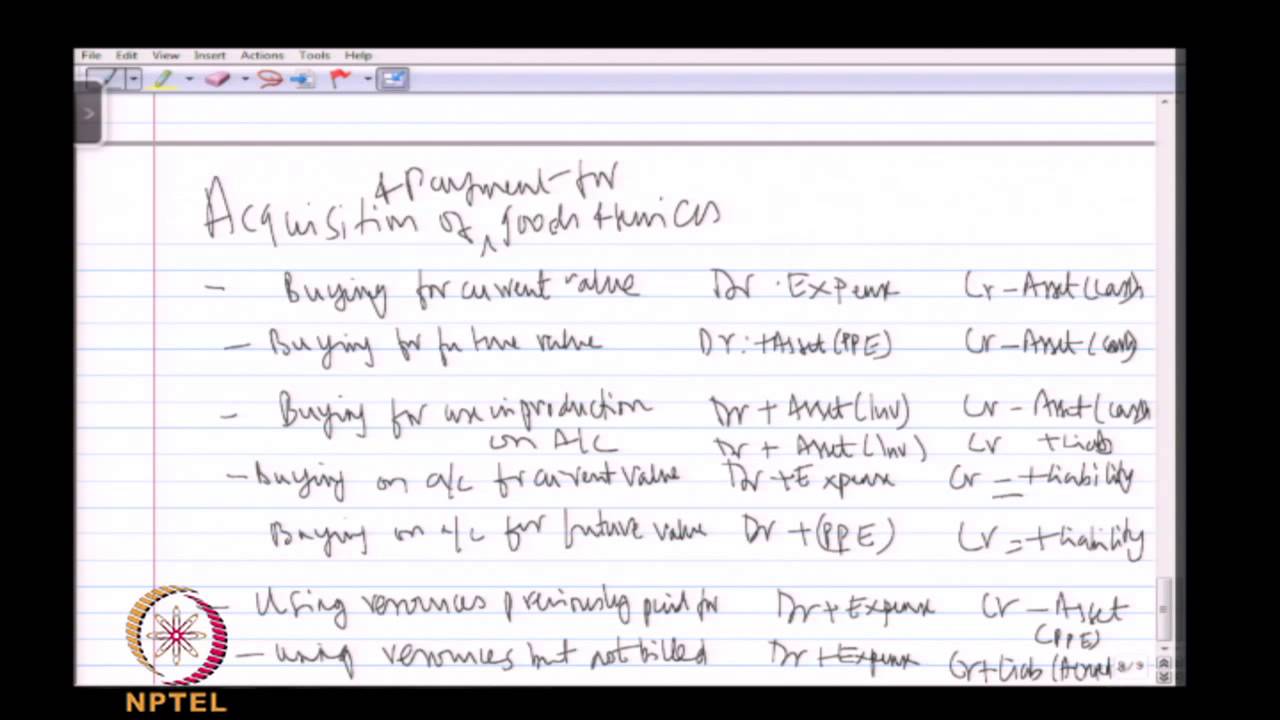 File Edit View Insert Actions Tools Help
& Payment for
Acquisition of goods & services
- Buying for current value Dr. Expense Cr - Asset (cash)
- Buying for future value Dr: + Asset (PPE) Cr - Asset (cash)
- Buying for use in production Dr + Asset (Inv) Cr - Asset (cash)
on A/C Dr + Asset (Inv) Cr + Liab
- Buying on a/c for current value Dr + Expense Cr = + liability
Buying on a/c for future value Dr + (PPE) Cr = + liability
- Using resources previously paid for Dr + Expense Cr - Asset
(PPE)
- using resources but not billed Dr + Expense Cr + Liab (Accrual
8/9
NPTEL